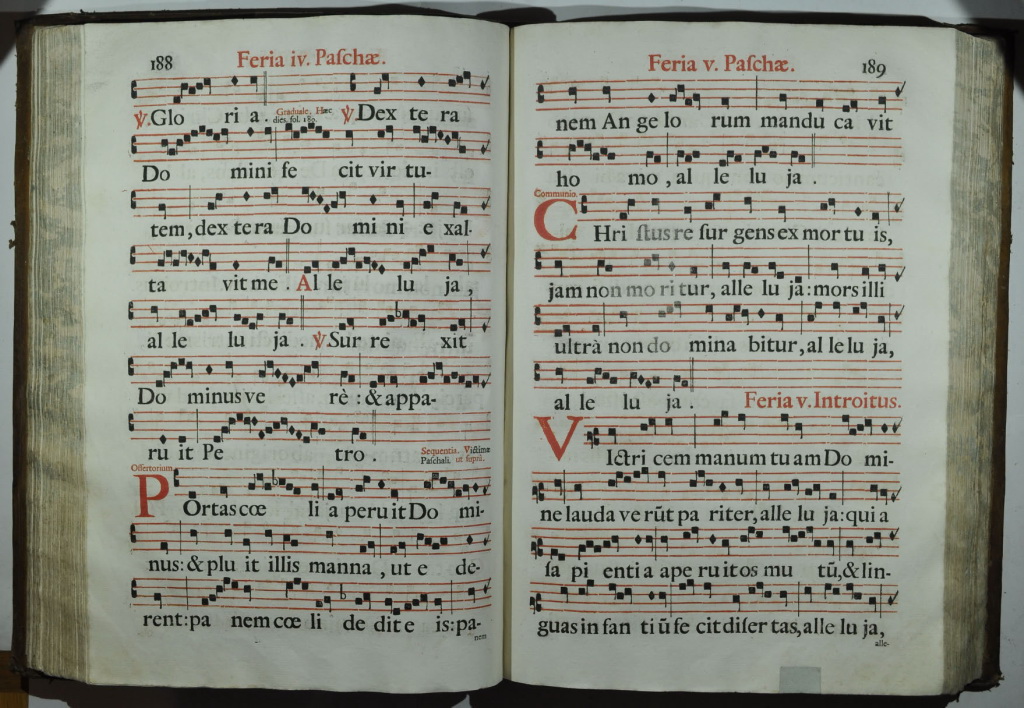 188
Feria iv. Paſchæ.
℣.Glo ri a. Graduale. Hæc dies, fol. 180. ℣.Dex te ra
Do mini fe cit vir tu-
tem, dex te ra Do mi ni e xal-
ta vit me. Al le lu ja,
al le lu ja. ℣.Sur re xit
Do minus ve rè: & appa-
ru it Pe tro. Sequentia. Victimæ Paſchali. ut ſupra.
Offertorium.
POrtas cœ li a peruit Do mi-
nus: & plu it illis manna, ut e de-
rent: pa nem cœ li de dit e is: pa-
nem
Feria v. Paſchæ.
189
nem An ge lo rum mandu ca vit
ho mo, al le lu ja.
Communio.
CHri ſtus re ſur gens ex mor tu is,
jam non mo ri tur, alle lu ja: mors illi
ultrà non do mina bitur, al le lu ja,
al le lu ja. Feria v. Introitus.
VIctri cem manum tu am Do mi-
ne lauda ve rūt pa riter, alle lu ja: qui a
ſa pi enti a ape ru it os mu tū, & lin-
guas in fan ti ū fe cit diſer tas, alle lu ja,
alle-